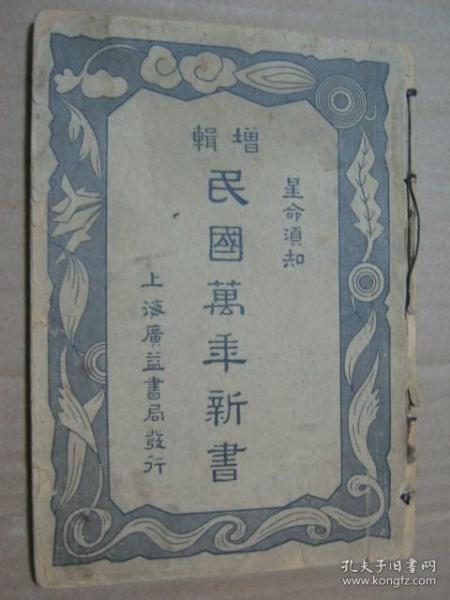 星命須知
增輯
民國萬年新書
上海廣益書局發行
孔夫子旧书网
www.kongfz.com